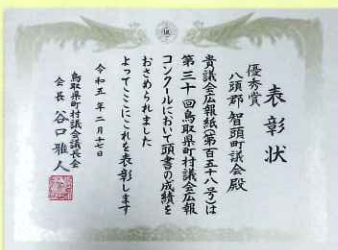 表彰状
優秀賞
八頭郡 智頭町議会殿
貴議会広報紙(第百五十八号)は
第三十回鳥取県町村議会広報
コンクールにおいて頭書の成績を
おさめられました
よってここにこれを表彰します
令和五年二月十七日
鳥取県町村議会議長会
会長 谷口雅人